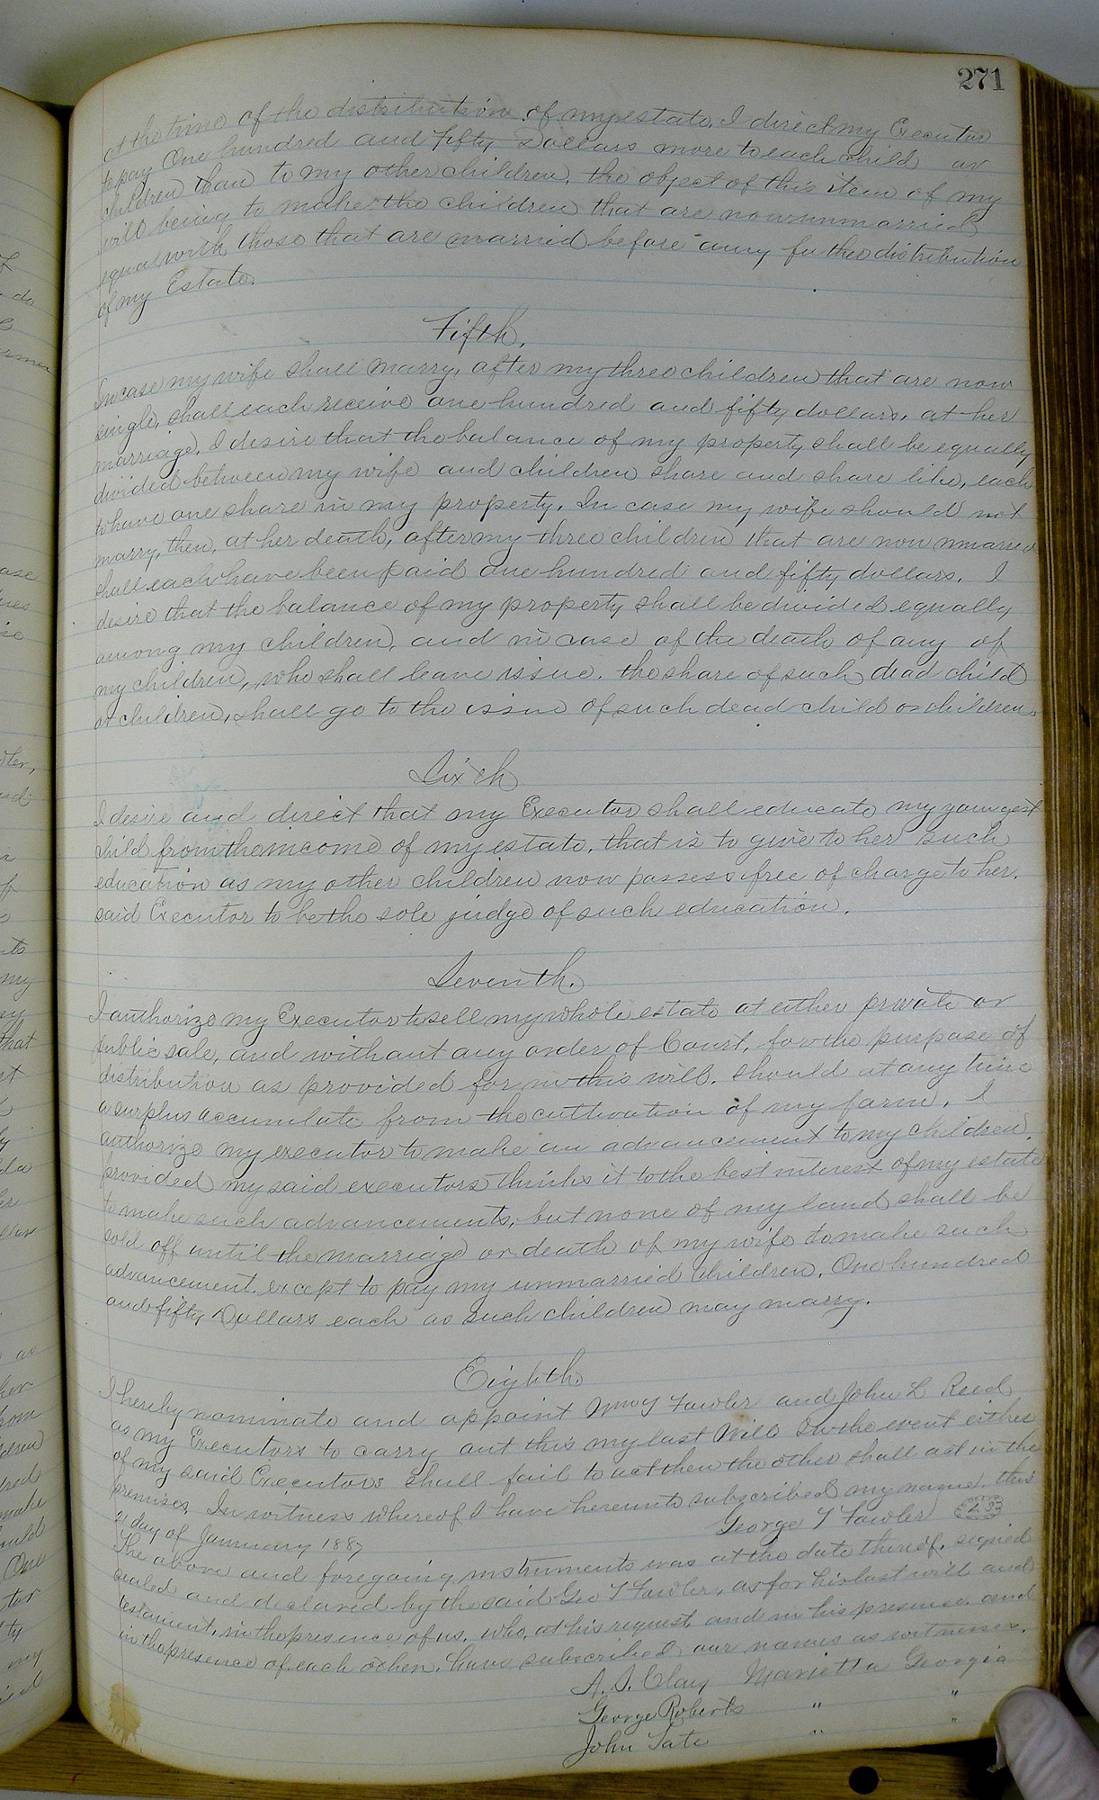 271
at the time of the distribution of my estate. I direct my Executor
to pay One hundred and Fifty Dollars more to each child or
children than to my other children. the object of this item of my
will being to make the children that are now unmarried
equal with those that are married before any futher distribution
of my Estate.
Fifth.
In case my wife shall marry, after my three children that are now
single, shall each receive one hundred and fifty dollars, at her
marriage. I desire that the balance of my property shall be equally
divided between my wife and children share and share like, each
to have one share in my property. In case my wife should not
marry, then, at her death, after my three children that are now unmarried
shall each have been paid one hundred and fifty dollars. I
desire that the balance of my property shall be divided equally
among my children, and in case of the death of any of
my children, who shall leave issue. the share of such dead child
or children, shall go to the issue of such dead child or children.
Sixth
I desire and direct that my Executor shall educate my youngest
child from the income of my estate, that is to give to her such
education as my other children now possess free of charge to her.
said Executor to be the sole judge of such education.
Seventh.
I authorize my Executor to sell my whole estate at either private or
public sale, and without any order of Court, for the purpose of
distribution as provided for in this will. Should at any time
a surplus accumulate from the cultivation of my farm, I
authorize my executor to make an advancement to my children.
provided my said executors thinks it to the best interest of my estate
to make such advancements, but none of my land shall be
sold off until the marriage or death of my wife to make such
advancement except to pay my unmarried children. One hundred
and fifty Dollars each as such children may marry.
Eighth.
I hereby nominate and appoint Fowler and John L Reed
as my Executors to carry out this my last Will In the event either
of my said Executors shall fail to act then the other shall act in the
premises. In witness whereof I have hereunto subscribed my name, this
21 day of January 1887 George T Fowler L.S.
The above and foregoing instruments was at the date thereof, signed
sealed and declared by the said Geo T Fowler, as for his last will and
testament, in the presence of us, who, at his request, and in his presence and
in the presence of each other, have subscribed our names as witnesses.
A. S. Clay Marietta Georgia
George Roberts " "
John Tate " "